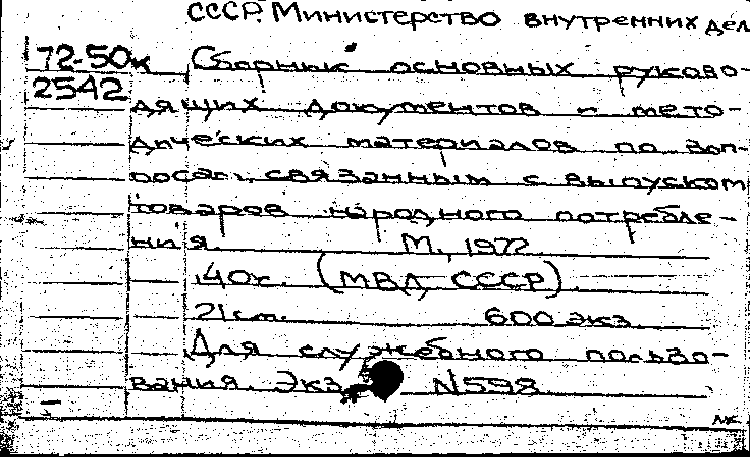 СССР. Министерство внутренних дел
72-50к Сборник основных руково-
2542 дящих документов и мето-
дических материалов по воп-
росам, связанным с выпуском
товаров народного потребле-
ния. М., 1972
40с. (МВД СССР).
21 см. 600 экз.
Для служебного пользо-
вания. Экз. N 598